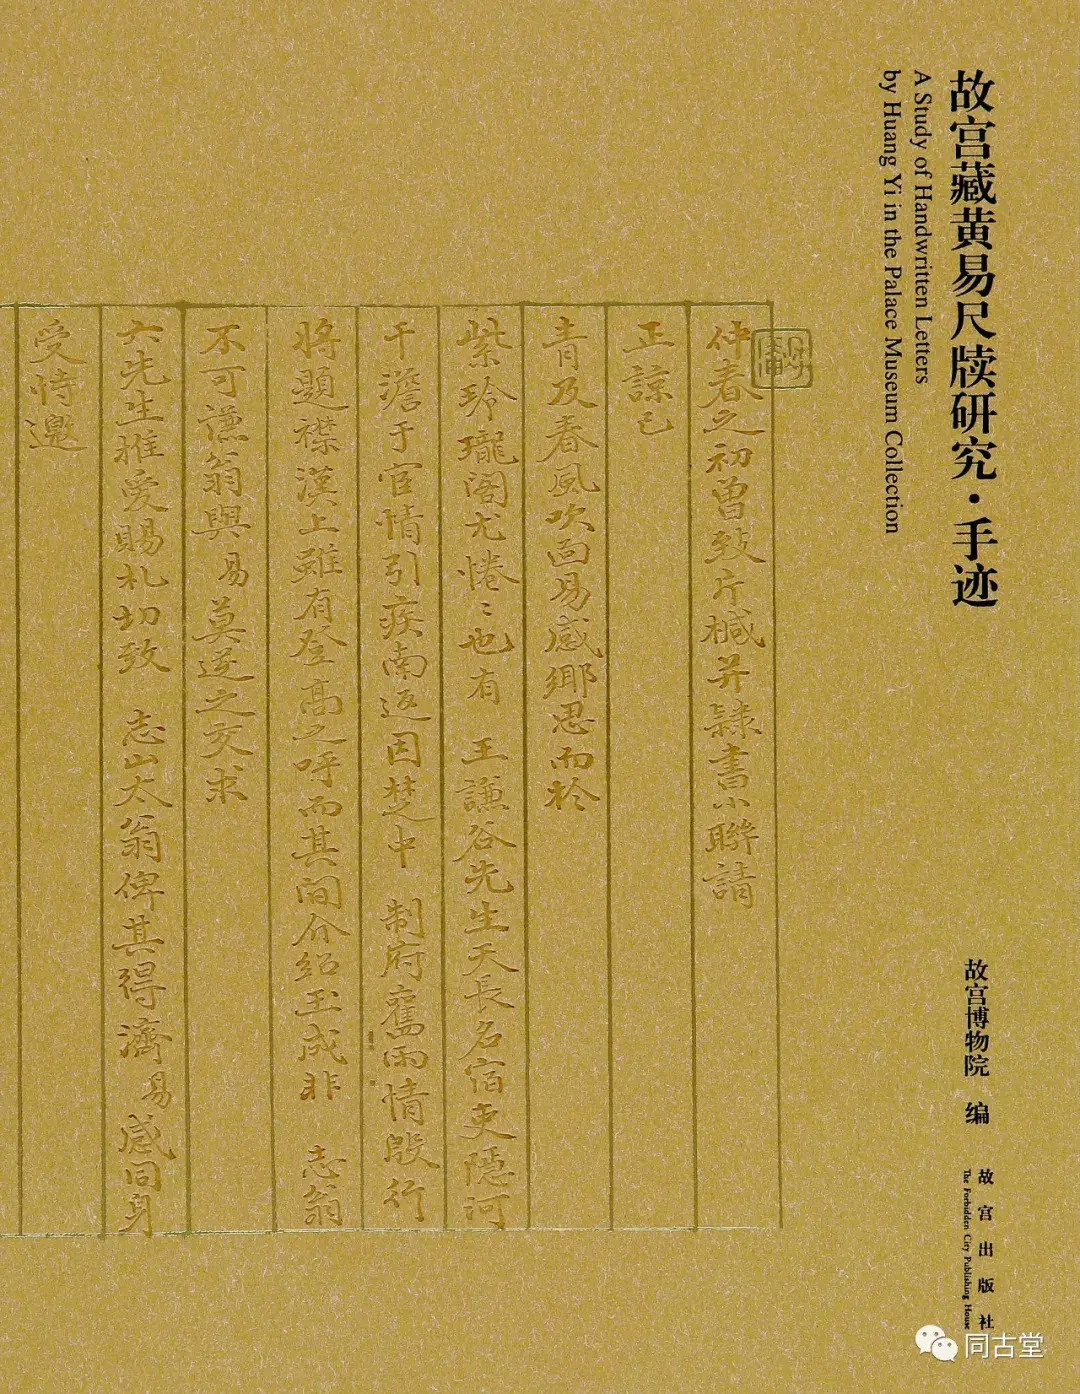 故宫藏黄易尺牍研究·手迹
A Study of Handwritten Letters
by Huang Yi in the Palace Museum Collection
故宫博物院 编
故宫出版社
The Forbidden City Publishing House
仲春之初曾致片槭并隸書小聯請
正諒已
青及春風吹面易感鄉思而於
紫玲瓏閣尤惓〻也有 王謙谷先生天長名宿吏隱河
干澹于宦情引疾南返因楚中 制府舊雨情殷行
將題襟漢上雖有登高之呼而其間介紹玉成非 志翁
不可谦翁與易莫逆之交求
六先生推愛賜札切致 志山太翁俾其得濟易感同身
受恃邀
同古堂